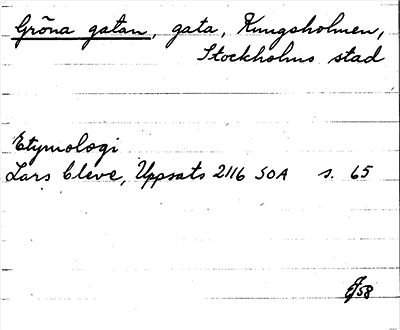 Gröna gatan, gata, Kungsholmen,
Stockholms stad
Etymologi
Lars Cleve, Uppsats 2116 SOA s. 65